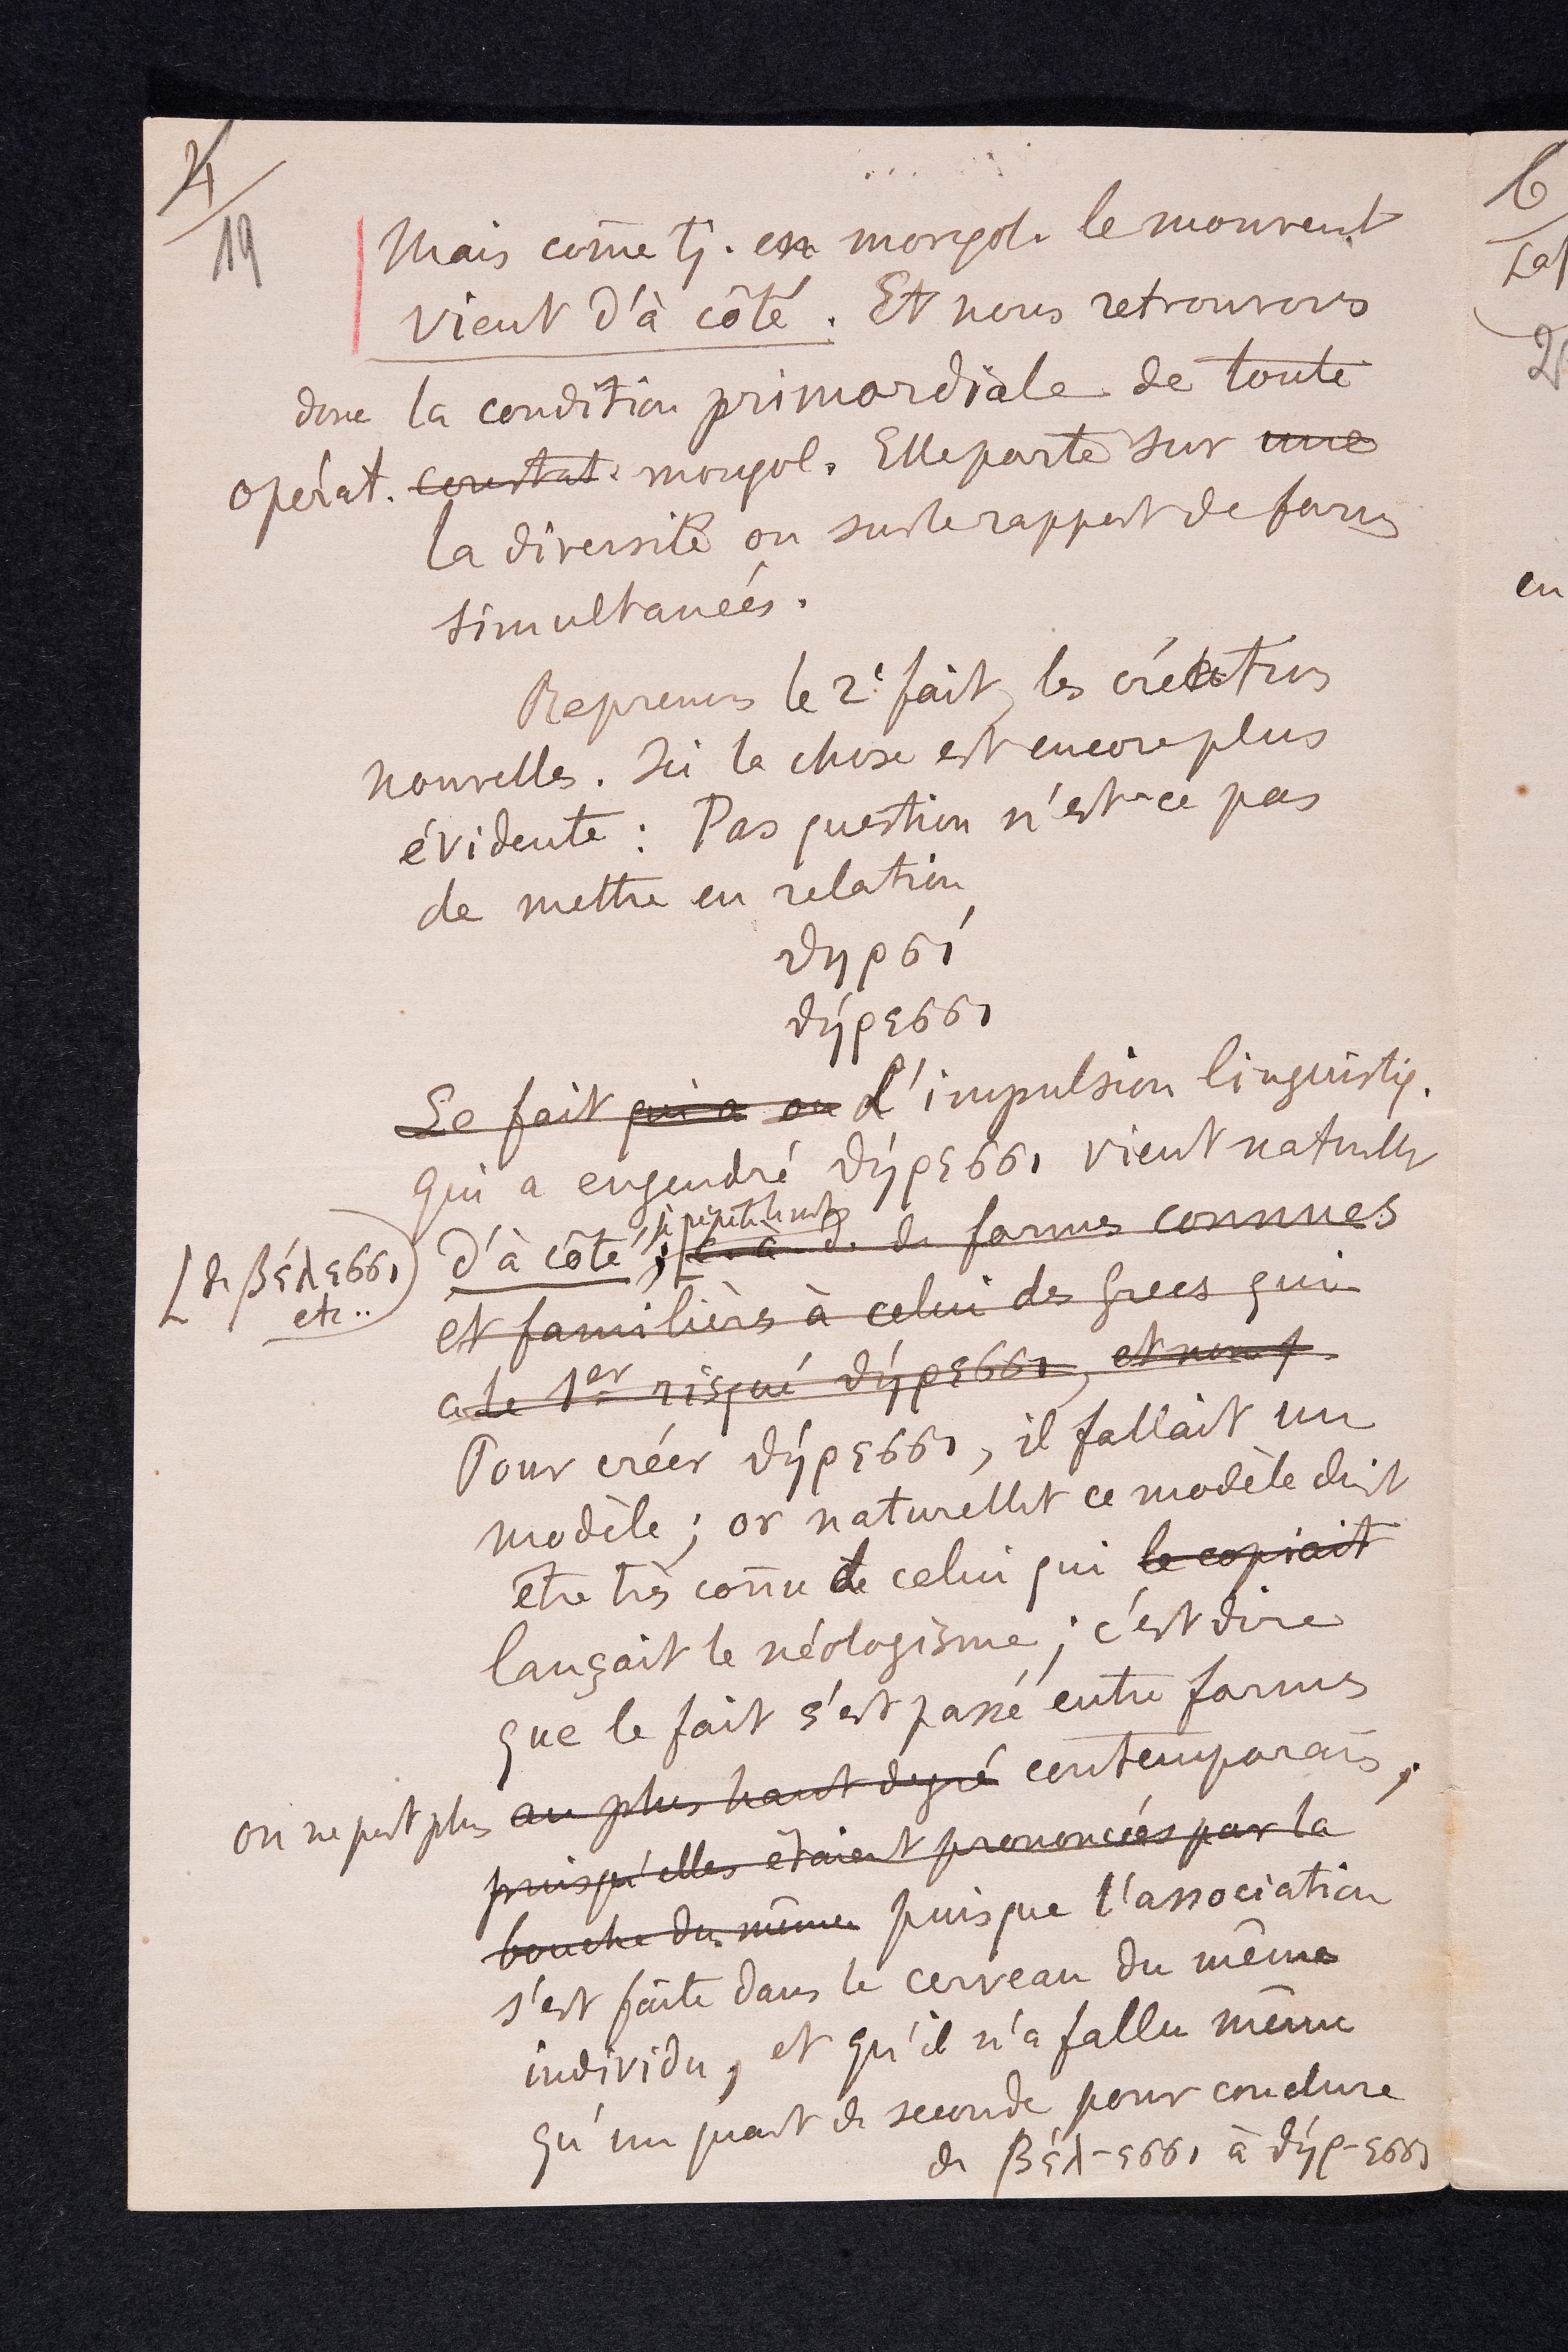 4
19
Mais come tj. en morphol. le mouvent
vient d'à côté. Et nous retrouvons
donc la condition primordiale de toute
opérat. constat. morphol. Elle porte sur une
la diversité ou sur le rapport de formes
simultanéés.
Reprenons le 2e fait, les créations
nouvelles. Ici la chose est encore plus
évidente : Pas question n'est-ce pas
de mettre en relation
θηρσί
θήρεσσι
Le fait qui a eu L'impulsion linguistiq.
qui a engendré θήρεσσι vient naturellt
d'à côté, je répète le mot, c. à d. de formes connues
[de βέλεσσι
etc..
et familières à celui des Grecs qui
a le 1er risqué θήρεσσι, et non f
Pour créer θήρεσσι, il fallait un
modèle ; or naturellt ce modèle doit
être très connu de celui qui le copiait
lançait le néologisme ; c'est dire
que le fait s'est passé entre formes
on ne peut plus au plus haut degré contemporaines,
puisqu'elles étaient prononcées par la
bouche du même puisque l'association
s'est faite dans le cerveau du même
individu, et qu'il n'a fallu même
qu'un quart de seconde pour conclure
de βέλ-εσσι à θήρ-εσσι
6
en